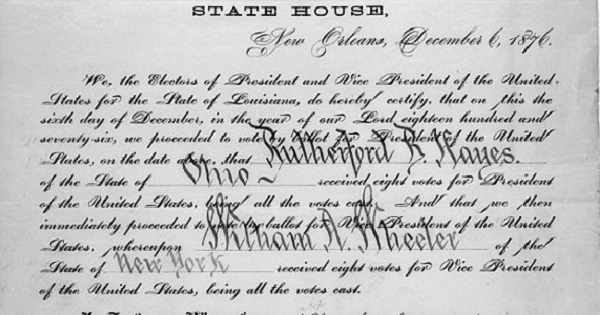 STATE HOUSE,
New Orleans, December 6, 1876.
We, the Electors of President and Vice President of the United
States for the State of Louisiana, do hereby certify, that on this the
sixth day of December, in the year of our Lord eighteen hundred and
seventy-six, we proceeded to vote by ballot for President of the United
States, on the date above, that Rutherford B. Hayes.
of the State of Ohio received eight votes for President
of the United States, being all the votes cast. And that we then
immediately proceeded to vote by ballot for Vice President of the United
States, whereupon William A. Wheeler of the
State of New York received eight votes for Vice President
of the United States, being all the votes cast.